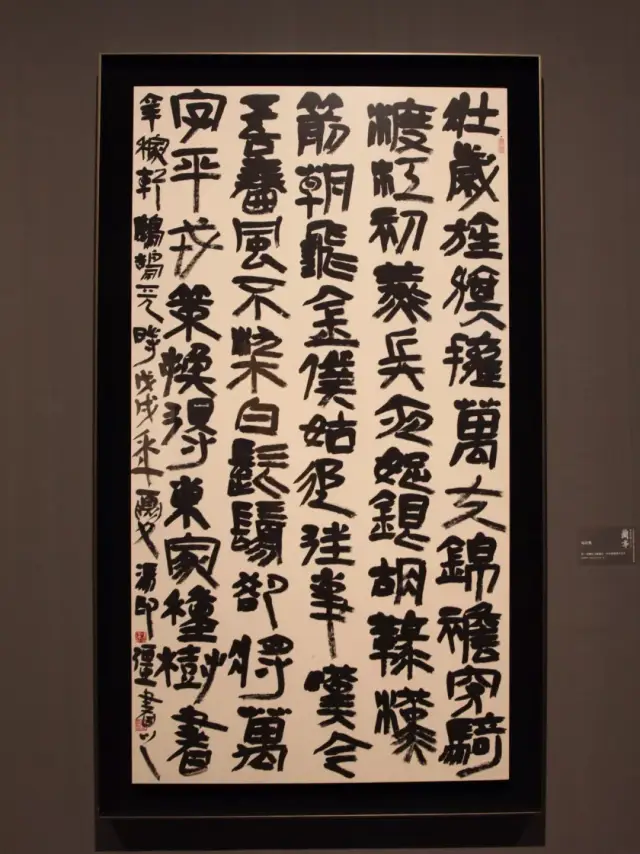 壯歲旌旗擁萬夫錦襜突騎
渡江初燕兵夜娖銀胡䩮漢
箭朝飛金僕姑追往事嘆今
吾春風不染白髭鬚卻將萬
字平戎策換得東家種樹書
辛稼軒鷓鴣天時戊戌年夏湯印彊書